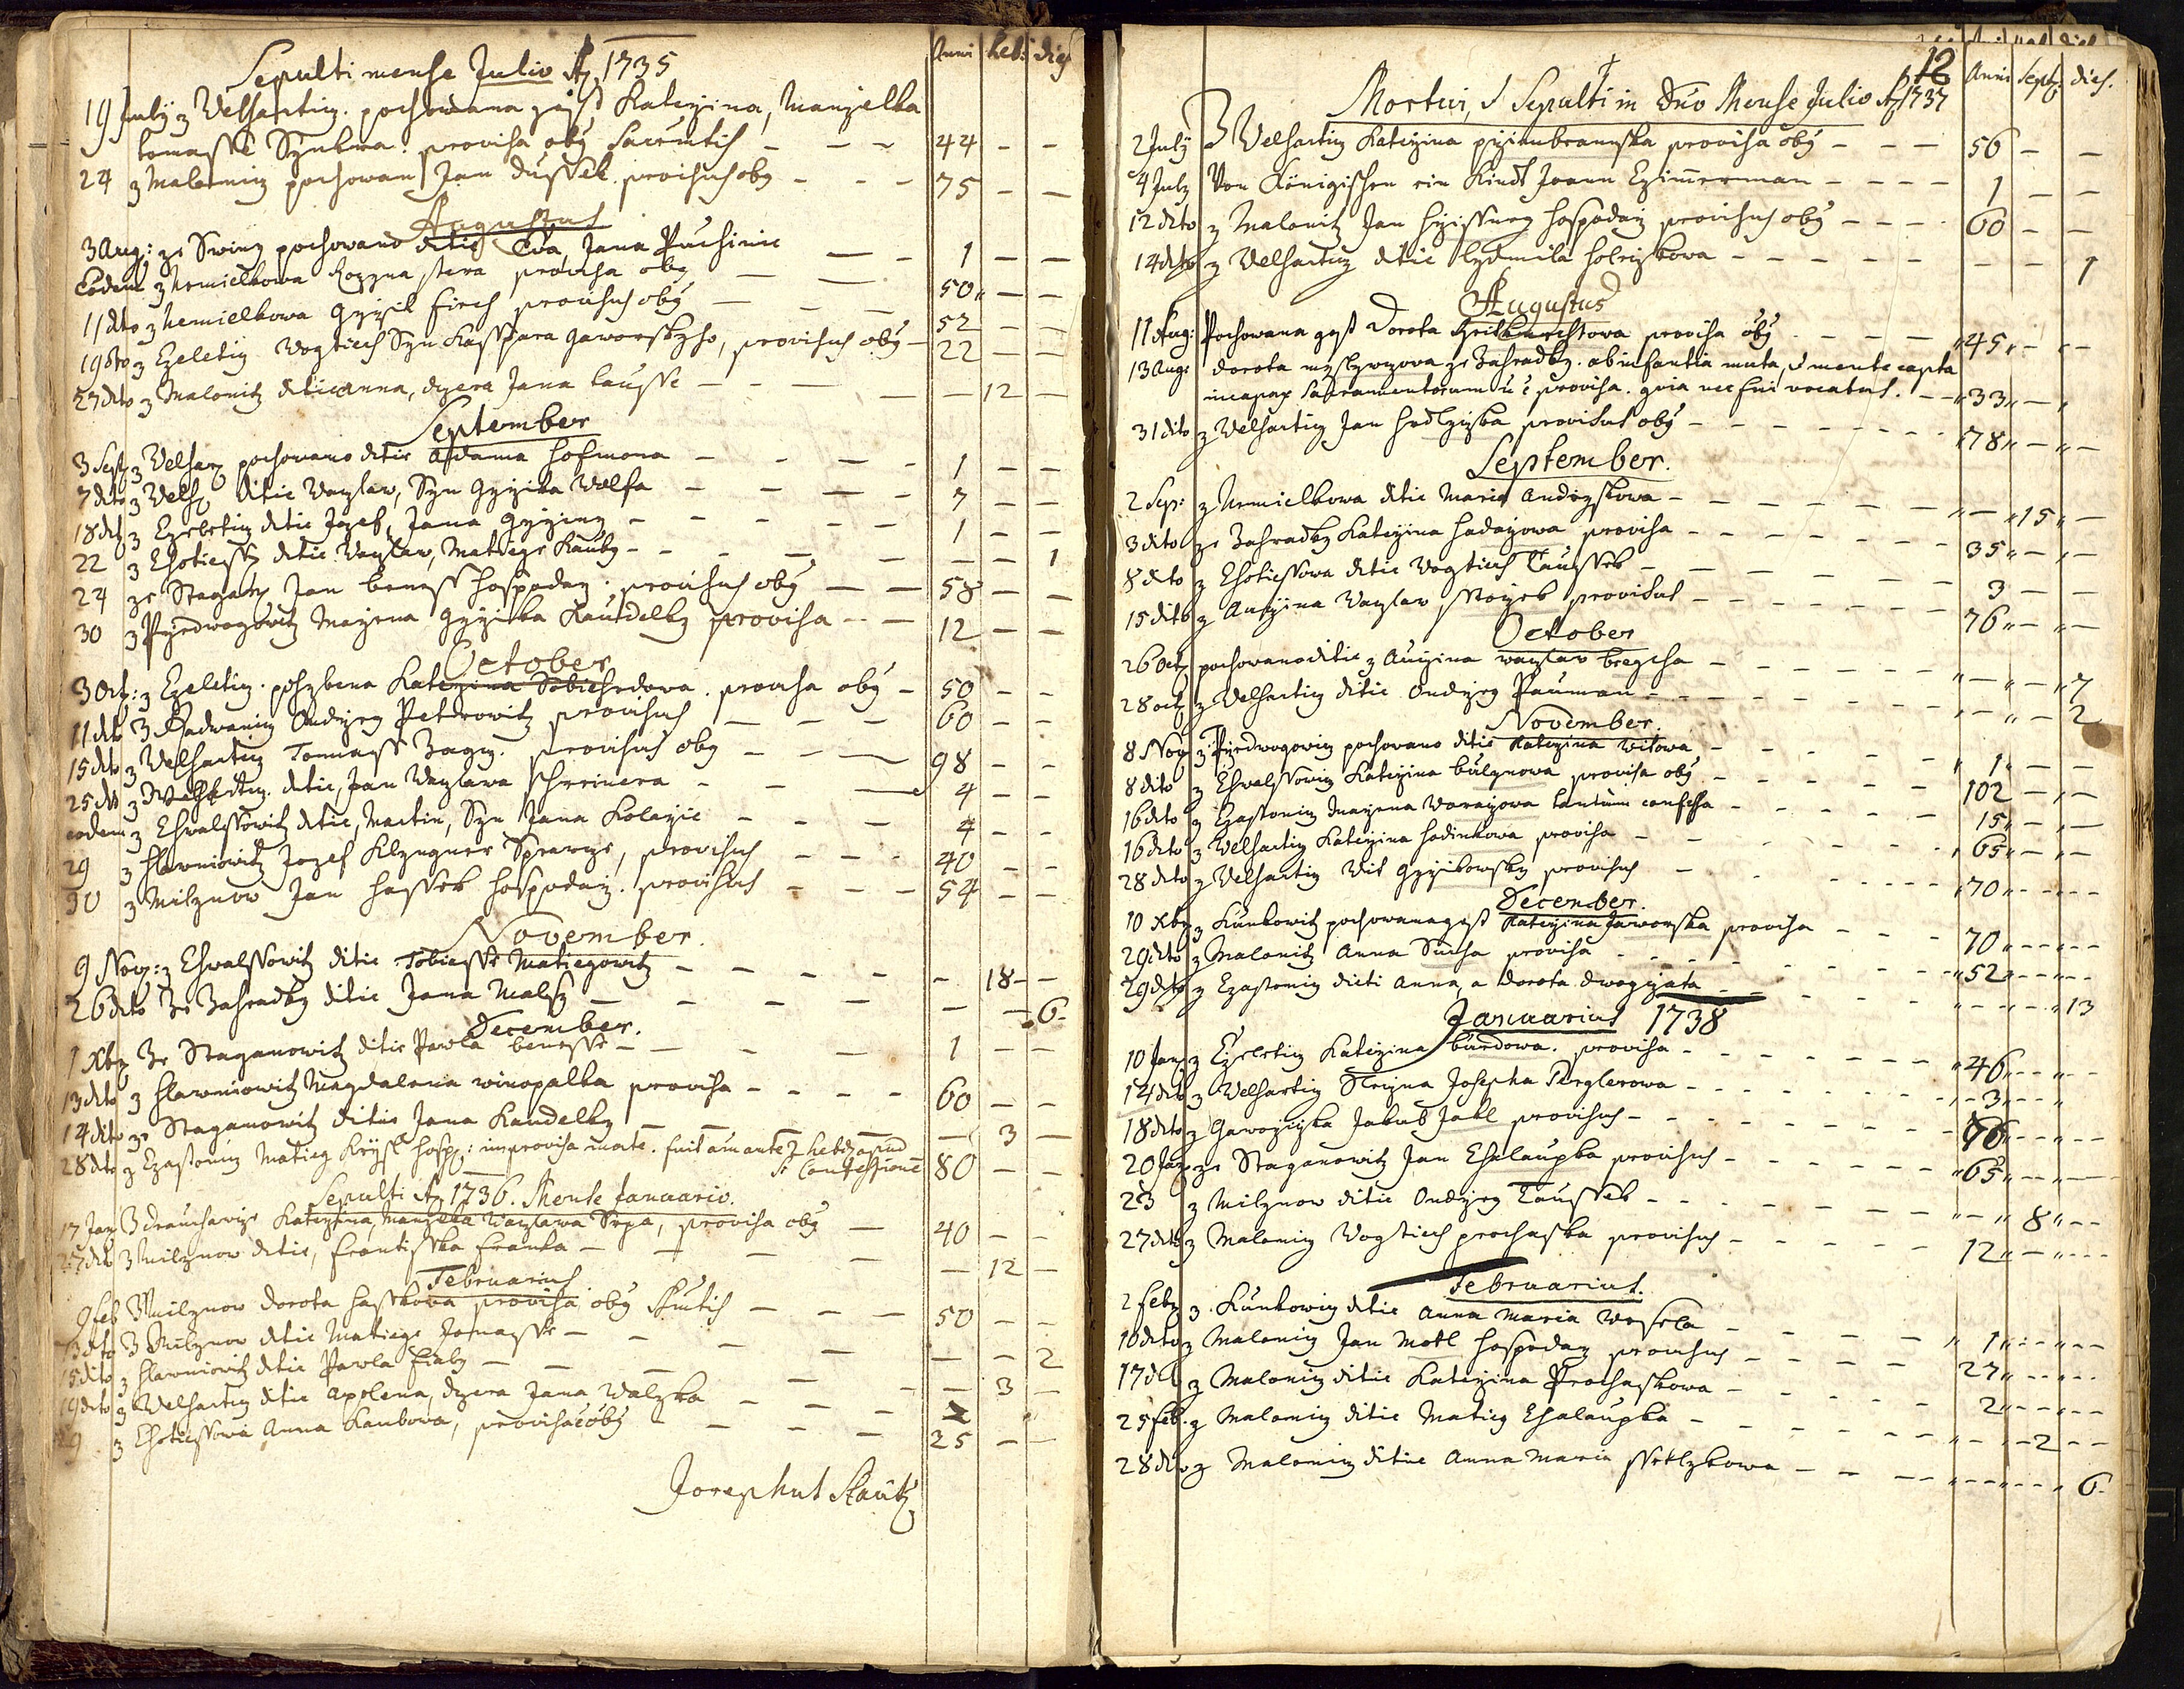 Sepulti mense Julio Ao 1735 Anni hebd: dies
19 July z Welhartiz. pochowana gest Katerzina, Manzelka
tomasse Synkna. provisa oby Sacrmtis - - - 44 - -
24 z Malonniz pochowan Jan dussek. provisus oby - - - 75 - -
Augustus
3 Aug: ze Swiny pochowano ditie Eva Jana Puchinie - - 1 - -
Eodem z hrmielkowa Rozyna stara provisa oby - - 50 - -
11 dto z hrmielkowa Gyrzik Firch provisus oby - - 52 - -
19 dto z Czeletiz Wogtiech Syn Kasspara Jaworskyho, provisus oby - 22 - -
27 dto z Malonitz ditie anna, dcera Jana tausse - - - 12 -
September
3 Sept z Welhar pochowano ditie Adama Hofmona - - - - 1 - -
7 dto z Welh ditie Waczlaw, Syn Gyrzika Wolfa - - - - 7 - -
18 dto z Czeletiz ditie Jozef, Jana Gyrziny - - - - 1 - -
22 z Chotiessz ditie Waczlaw, Matiege Kauby - - - - - 1
24 ze Stagan Jan beness hospodarz. provisus oby - - 58 - -
30 z Przedwogowitz Marzena Gyrzika Kaudelky provisa - - 12 - -
October
3 Oct: z Czeletiz. pohrzbena Katerzina Sobiehrdowa. provisa oby - 50 - -
11 dto z Radwaniz Ondrzey Petrowitz provisus - - - 60 - -
15 dto z Welhartiz Tomass Zagiz. provisus oby - - 98 - -
25 dto z Welhartiz. ditie, Jan Waczlawa Schreinera - - 4 - -
eodem z Chwalssowitz ditie, Martin, Syn Jana Kolarzie - - - 4 - -
29 z Hlawniowitz Jozef Klyngner Sprawce, provisus - - - 40 - -
30 z Milznow Jan hassek hospodarz. provisus - - - 54 - -
November.
9 Nov: z Chwalssowitz ditie Tobiesse Matiegowitz - - - - - 18 -
26 dto Ze Zahradky ditie Jana Malsz - - - - - - 6-
December.
1 Xbr Ze Staganowitz ditie Pawla benesse - - - 1 - -
13 dto z Hlawniowitz Magdalena winopalka provisa - - - - 60 - -
14 dito ze Staganowitz ditie Jana Kaudelky - - - - 3 -
28 dto z Czastoniz Matieg Krysl hosp: improvisa morte. fuit autem ante hebd apud
S. Confessione 80 - -
Sepulti Ao 1736. Mense Januario.
17 Jan Z drauchawize Katerzina, Manzelka Waczlawa Srpa, provisa oby - 40 - -
27 dto z Milznow ditie, frantisska franka - - - 12 -
Februarius
9 feb Z Milznow dorota hasskowa provisa oby Smtis - - - 50 - -
13 dto Z Milznow ditie Matiege Jonasse - - - - - 2
15 dito z Hlawniowitz ditie Pawla Fialy - - - - 3 -
19 dto z Welhartiz ditie Apolena, dcera Jana Walyska - - -
29 z Chotiessowa Anna Kaubowa, provisa oby - - - 25 - -
Josephus Stautz
12
Mortui, & Sepulti in Duo Mense Julio Ao 1737 Anni Sept: dies.
2 July Z Welhartiz Katerzina przimbramska provisa oby - - - 56 - -
4 July Von Königischen ein Kindt Joann Czimerman - - - - 1 - -
12 dito z Malonitz Jan hrzissney hospodarz provisus oby - - - 60 - -
14 dto z Welhartiz ditie Lydmila holeczkowa - - - - - - - 1
Augustus
11 Aug: Pochowana gest Dorota provisa oby - - - 45 - -
13 Aug: dorota myslywczowa ze Zahradky. ab infantia muta, & mente capta
incapax Sacramentorum provisa. quia nec fui vocatus. - - 33 -
31 dito z Welhartiz Jan hrdlyczka provisus oby - - - - - - 78 - -
September.
2 Sep: z hrmielkowa ditie Maria Andryskowa - - - - - - 15 -
3 dito ze Zahradky Katerzina hadarzowa provisa - - - - - 35 - -
8 dito z Chotiessowa ditie Wogtiech Taussek - - - - - - 3 - -
15 dito z Aurzina Waczlaw Morzek provisus - - - - - - 76 - -
October
26 Oct pochowano ditie z Aurzina waczlaw bregcha - - - - - - 7
28 oct z Welhartiz ditie Ondrzey Pauman - - - - - - 2
November.
8 Nov z Przedwogowiz pochowano ditie Katerzina witowa - - - - 1 - -
8 dito z Chwalssowiz Katerzina bulynowa provisa oby - - - - 102 - -
16 dito z Czastoniz Marzena Worarzowa tantum confessa - - - - 15 - -
16 dito z Welhartiz Katerzina hodinkowa provisa - - - - 65 - -
28 dito z Welhartiz Wit Gyrzikowsky provisus - - - - 70 - -
December.
10 Xbr z Kunkowitz pochowana gest Katerzina Jaworska provisa - - - 70 - -
29 dto z Malonitz Anna Sucha provisa - - - - 52 - -
29 dto z Czastoniz dieti Anna, a Dorota dwogczata - - - - - 13
Januarius 1738
10 Jan z Czeletiz Katerzina burdowa. provisa - - - - 46 - -
14 dto z Welhartiz Sleczna Josepha Perglerowa - - - - 3 - -
18 dito z Jaworziczka Jakub Jakl provisus - - - - 76 - -
20 Jan ze Staganowitz Jan Chalaupka provisus - - - - 65 - -
23 z Milznow ditie Ondrzey Taussek - - - - 8 - -
27 dito z Maloniz Wogtiech prochaska provisus - - - - 12 - -
Februarius.
2 feb z. Kunkowiz ditie Anna Maria Wesela - - - - 1 - -
10 dito z Maloniz Jan Motl hospodarz provisus - - - - 27 - -
17 dto z Maloniz ditie Katerzina Prochaskowa - - - - 2 - -
25 feb. z Maloniz ditie Matieg Chalaupka - - - - 2 - -
28 dto z Maloniz ditie Anna Maria Ssetlykowa - - - - 6-